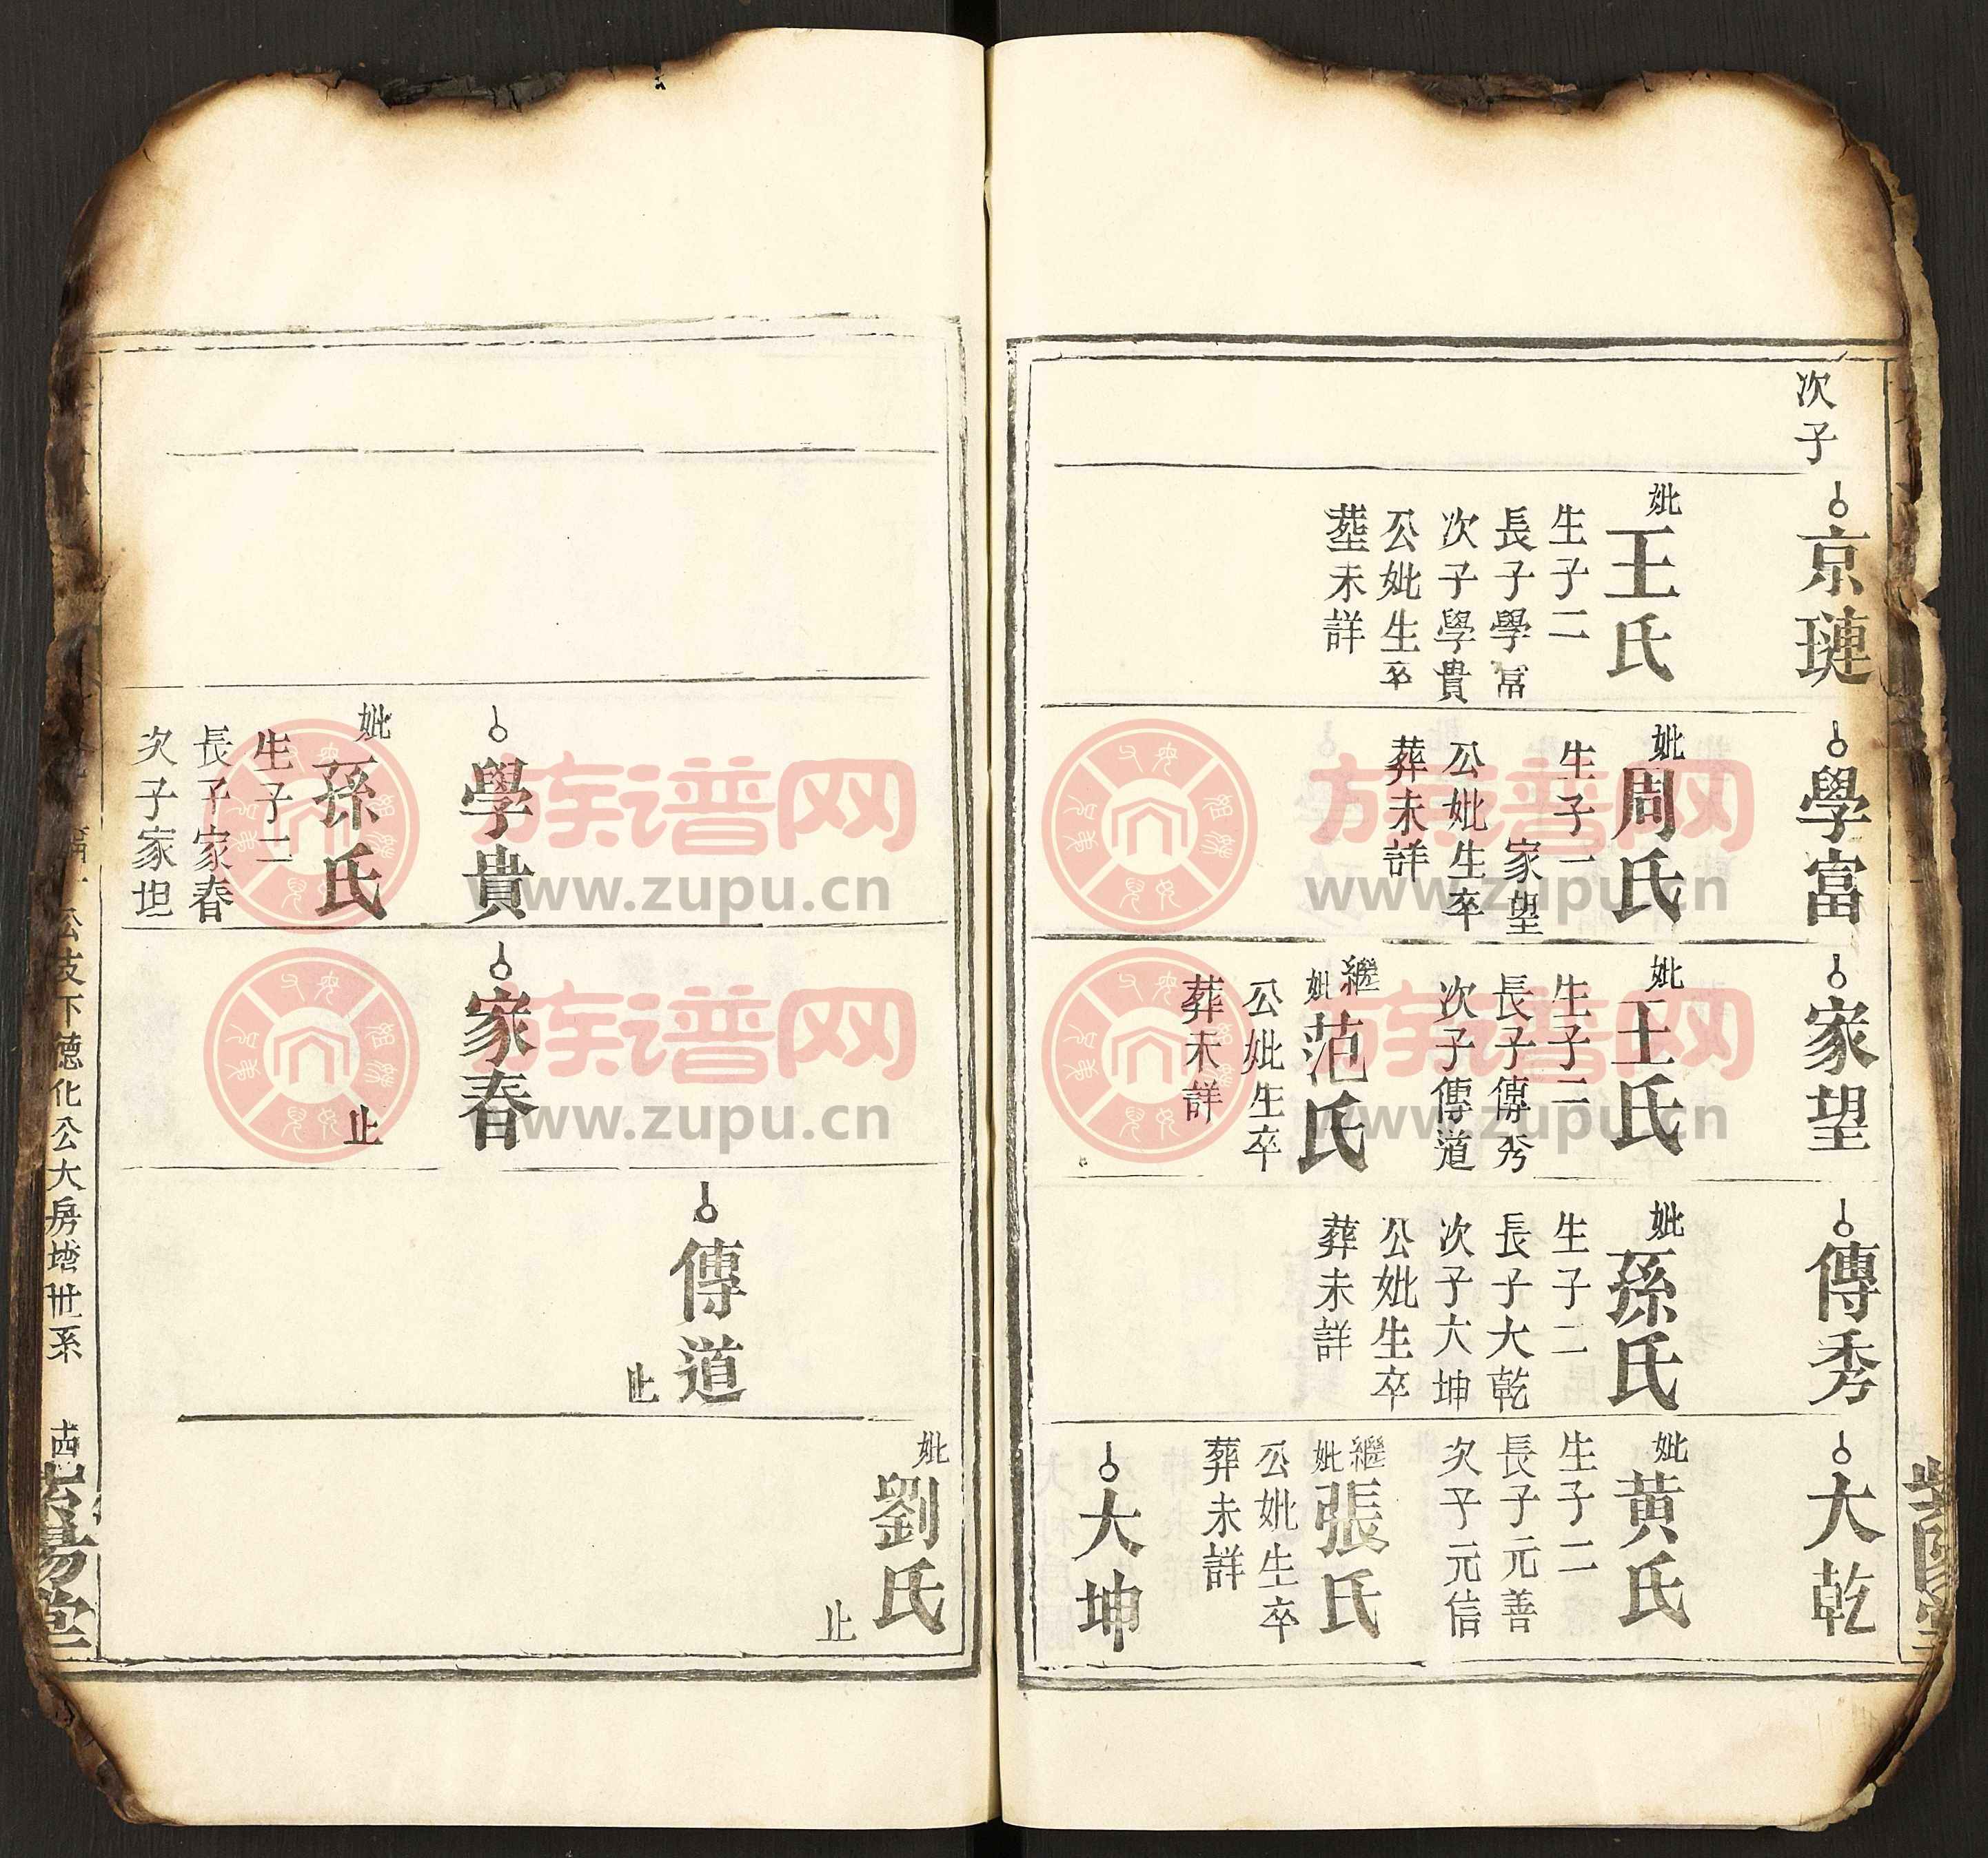 次子
京璉
妣
王氏
生子二
長子學富
次子學貴
公妣生卒
塟未詳
學富
妣
周氏
生子一
家望
公妣生卒
葬未詳
家望
妣
王氏
生子二
長子傳秀
次子傳道
繼
妣
范氏
公妣生卒
葬未詳
傳秀
妣
孫氏
生子二
長子大乾
次子大坤
公妣生卒
葬未詳
大乾
妣
黄氏
生子二
長子元善
次子元信
繼
妣
張氏
公妣生卒
葬未詳
大坤
妣
劉氏
止
傳道
止
學貴
妣
孫氏
生子二
長子家春
次子家坦
家春
止
公支下德化公大房增世系
族谱网
www.zupu.cn
族谱网
www.zupu.cn
族谱网
www.zupu.cn
族谱网
www.zupu.cn